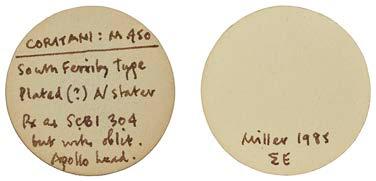 CORITANI : M 450
South Ferriby Type
Plated (?) N stater
Rx as SCBI 304
but with oblit.
Apollo head.
Miller 1985
ΣE